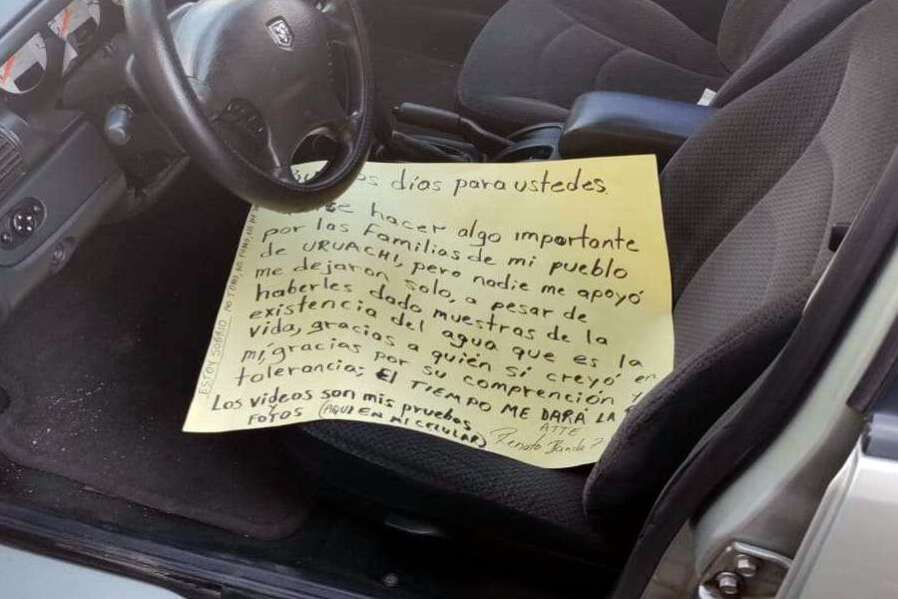 días para ustedes
hacer algo importante
por las familias de mi pueblo
de URUACHI, pero nadie me apoyó
me dejaron solo, a pesar de
haberles dado muestras de la
existencia del agua que es la
vida, gracias a quién sí creyó en
mí, gracias por su comprención y
tolerancia; El TIEMPO ME DARÁ LA
Los videos son mis pruebas
FOTOS (AQUI EN MI CELULAR)
ATTE
Renato Banda
ESTOY SOBRIO NO TOMO, NO FUMO, NO